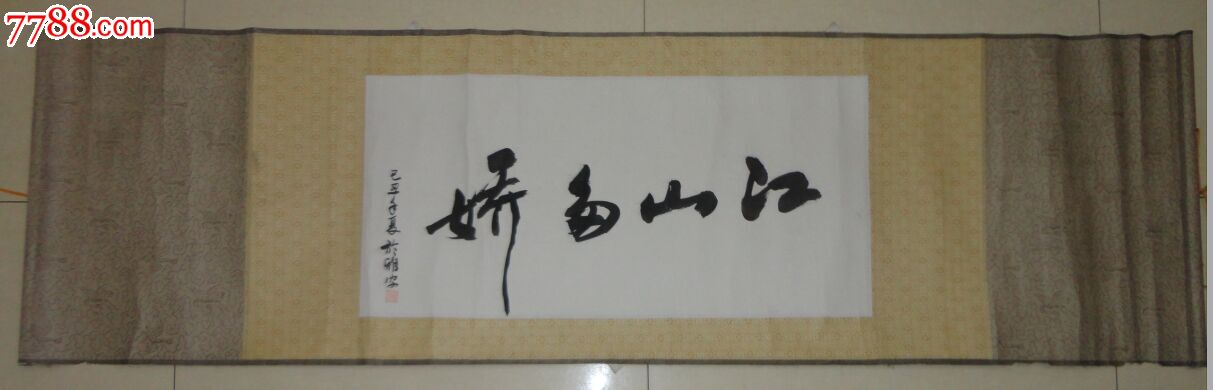 7788.com
江山多娇
己丑年夏於雅安